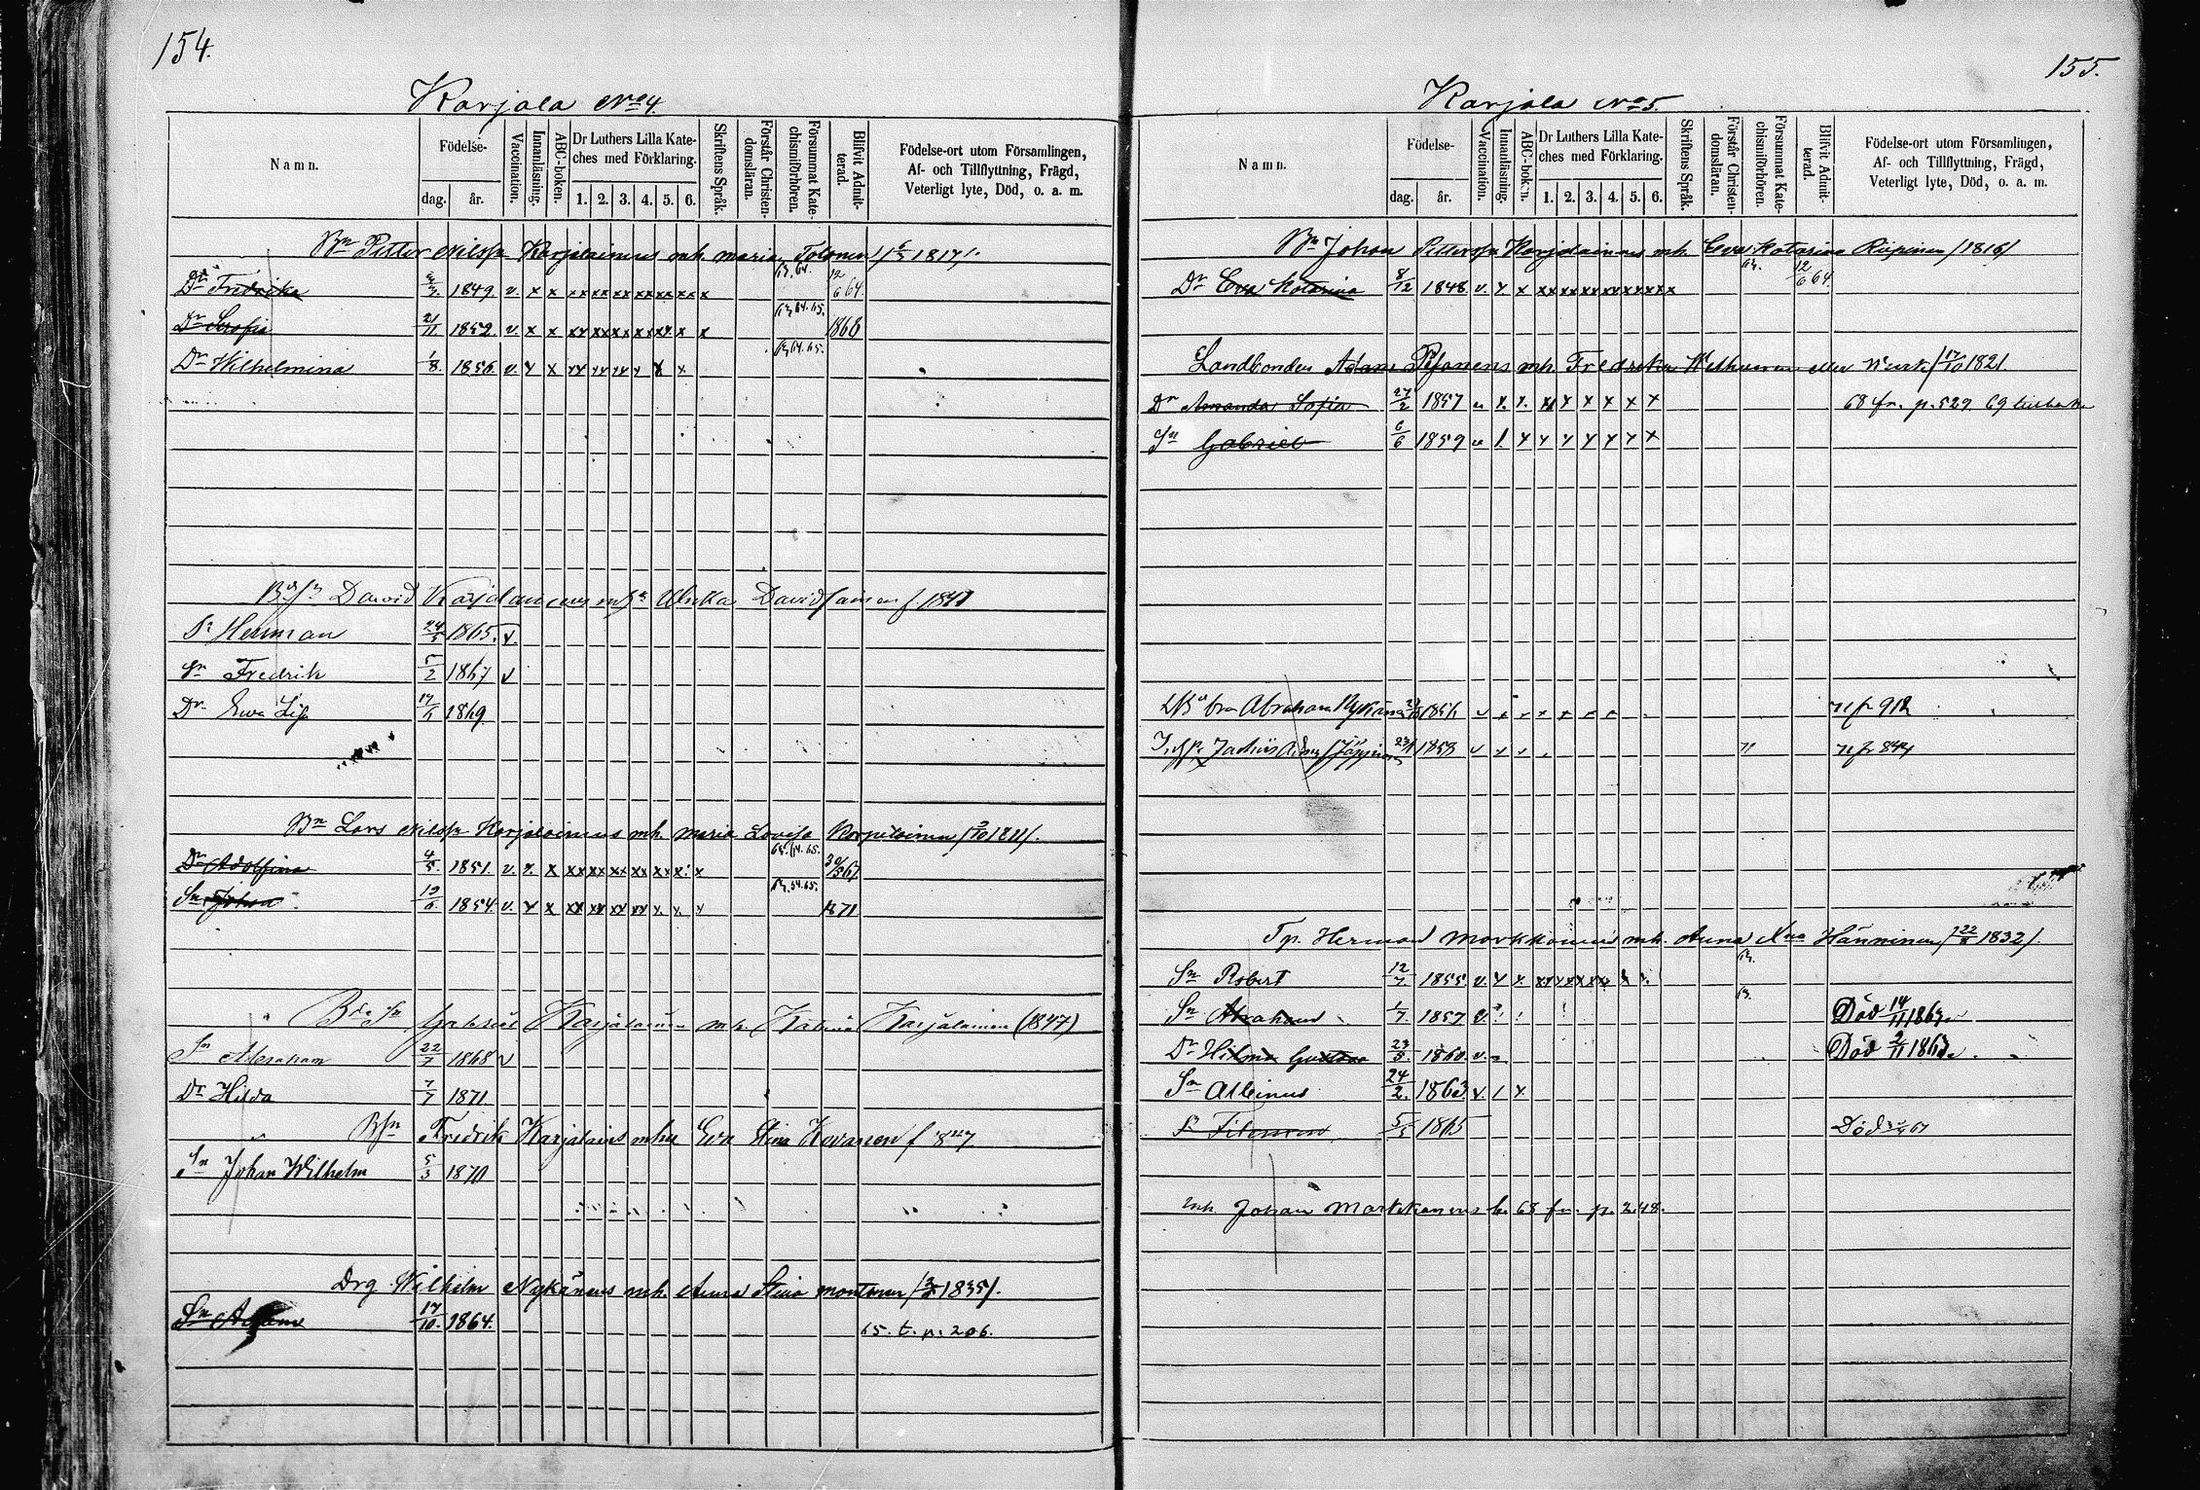 154.
Karjala No 4.
Namn.
Födelse-
dag. år.
Vaccination.
Innanläsning.
ABC-boken.
Dr Luthers Lilla Kate-
ches med Förklaring.
1. 2. 3. 4. 5. 6.
Skriftens Språk.
Förstår Christen-
domsläran.
Försummat Kate-
chismiförhören.
Blifvit Admit-
terad.
Födelse-ort utom Församlingen,
Af- och Tillflyttning, Frägd,
Veterligt lyte, Död, o. a. m.
Bn Petter Nilsson Karjalainens mh. Maria Tolonen 1817
Dr Fredrika 1849 v. x x xx xx xx xx xx x x 63.64. 12/6 64.
Dr Sofia 21/11 1852 v. x x xx xx xx xx xx x x 63.64.65. 1868
Dr Wilhelmina 1/8 1856 v. x x xx xx xx x x x 63.64.65.
Dawid Karjalainens Ulrika Davidsainen f 1841
Sn Herman 24/5 1865. v.
Sn Fredrik 5/2 1867 v
Dr Ewa Lis. 1869
Bn Lars Nilsson Karjalainens mh. Maria Lovisa Korpelainen
Dr Adolfina 4/5. 1851. v. x. x xx xx xx xx x x. x 63.64.65. 67
Sn Johan 19/6 1854 v. x x xx xx xx xx x. x. x 63.64.65. 1871
Gabriel Karjalainen mh. Katrina Karjalainen (1847)
Sn Abraham 22/7 1868 v
Dr Hilda 7/7 1871
Fredrik Karjalains mhu Eva Stina Kovanen f 1847
Sn Johan Wilhelm 5/3 1870
Drg Wilhelm Nykänens mh. Anna Stina Montonen 1835
Sn Adam 17/10. 1864. 65. t. p. 206.
155.
Karjala No 5.
Namn.
Födelse-
dag. år.
Vaccination.
Innanläsning.
ABC-boken.
Dr Luthers Lilla Kate-
ches med Förklaring.
1. 2. 3. 4. 5. 6.
Skriftens Språk.
Förstår Christen-
domsläran.
Försummat Kate-
chismiförhören.
Blifvit Admit-
terad.
Födelse-ort utom Församlingen,
Af- och Tillflyttning, Frägd,
Veterligt lyte, Död, o. a. m.
Bn Johan Petterson Karjalainens mh. Eva Katarina Riipinen /1816/
Dr Eva Katarina 8/12 1848 v. x. x xx xx xx xx xx xx x 63. 12/6 64.
Landbonden Adam Pisonens mh. Fredrika eller 17/10 1821.
Dr Amanda Sofia 27/2 1857 x. x. x x x x x x 68 fr. p. 529. 69
Sn Gabriel 6/6 1859 x x x x x x x
Abraham Nykänen 1856 71 fr 912
1858 71 71 fr 844
Tp. Herman Markkanens mh. Anna Hänninen 22/8 1832
Sn Robert 12/7 1855 v. x x. xx xx xx xx x x. 63.
Sn Abraham 1/7. 1857 v. 63. Död 14/11 1863
Dr Hilma Gustava 23/5. 1860 v. Död 2/11 1863
Sn Albinus 24/2. 1863 v. 1 x
Sn Filemon 5/5 1865 Död 67
Johan Markkanens 68 fr. p. 248.